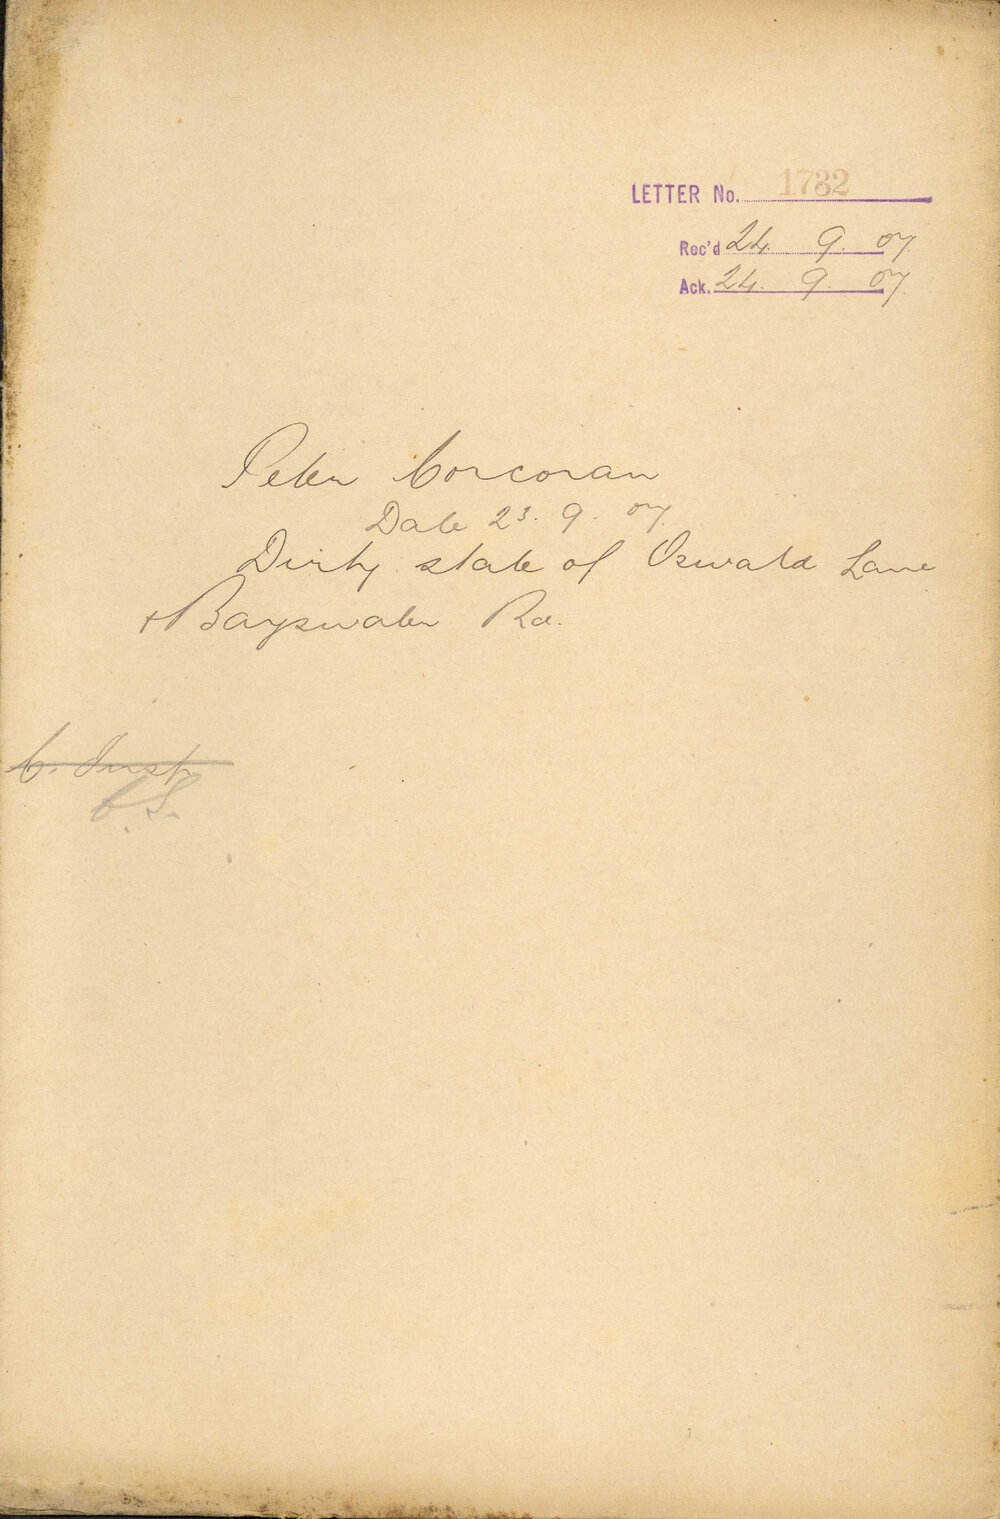 LETTER No. 1732
Rec'd 24. 9. 07.
Ack. 24. 9. 07.
Peter Corcoran
Date 23. 9. 07.
Dirty state of Oswald Lane
+ Bayswater Rd.
C. Insp
C.S.